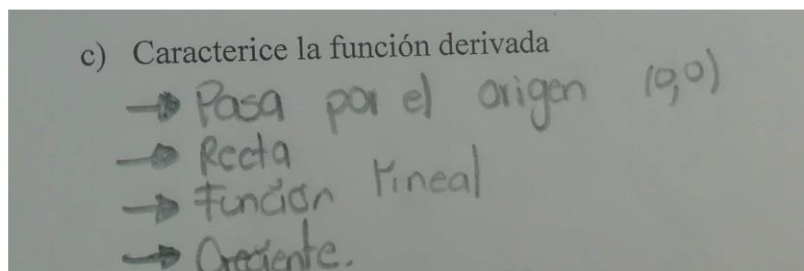 c) Caracterice la función derivada
→ Pasa por el origen (0,0)
→ Recta
→ Función lineal
→ Creciente.